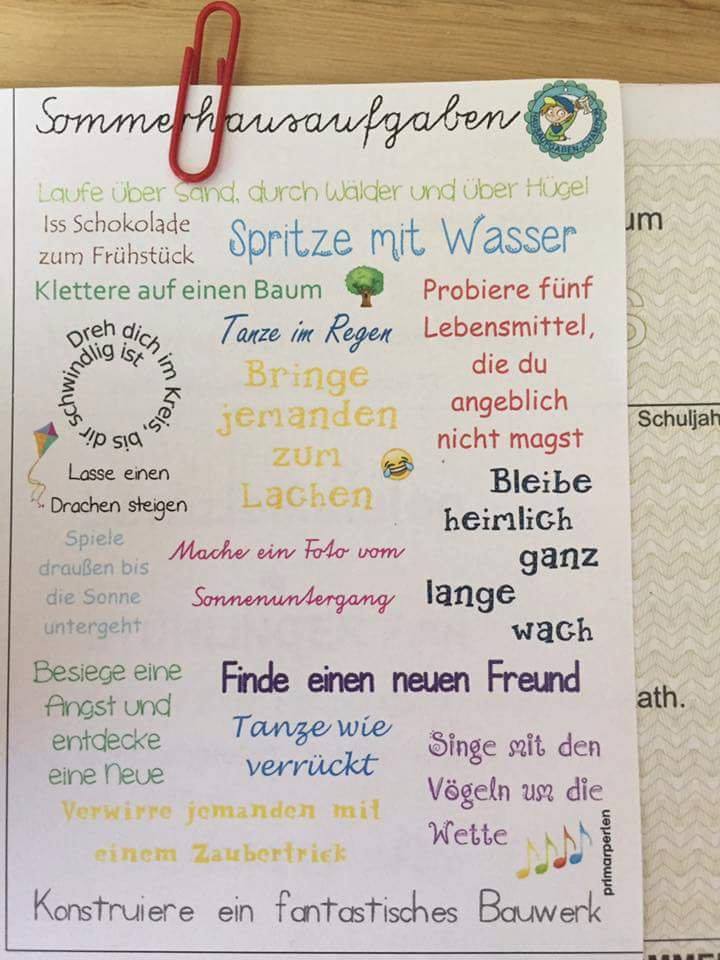 Sommerhausaufgaben
HAUSAUFGABEN-CHAMPION
Laufe über Sand, durch Wälder und über Hügel
Iss Schokolade
zum Frühstück
Spritze mit Wasser
Klettere auf einen Baum
Probiere fünf
Lebensmittel,
die du
angeblich
nicht magst
Dreh dich im Kreis, bis dir schwindlig ist
Tanze im Regen
Bringe
jemanden
zum
Lachen
Lasse einen
Drachen steigen
Bleibe
heimlich
ganz
lange
wach
Spiele
draußen bis
die Sonne
untergeht
Mache ein Foto vom
Sonnenuntergang
Besiege eine
Angst und
entdecke
eine Neue
Finde einen neuen Freund
Tanze wie
verrückt
Singe mit den
Vögeln um die
Wette
Verwirre jemanden mit
einem Zaubertrick
primarperlen
Konstruiere ein fantastisches Bauwerk
um
Schuljah
ath.